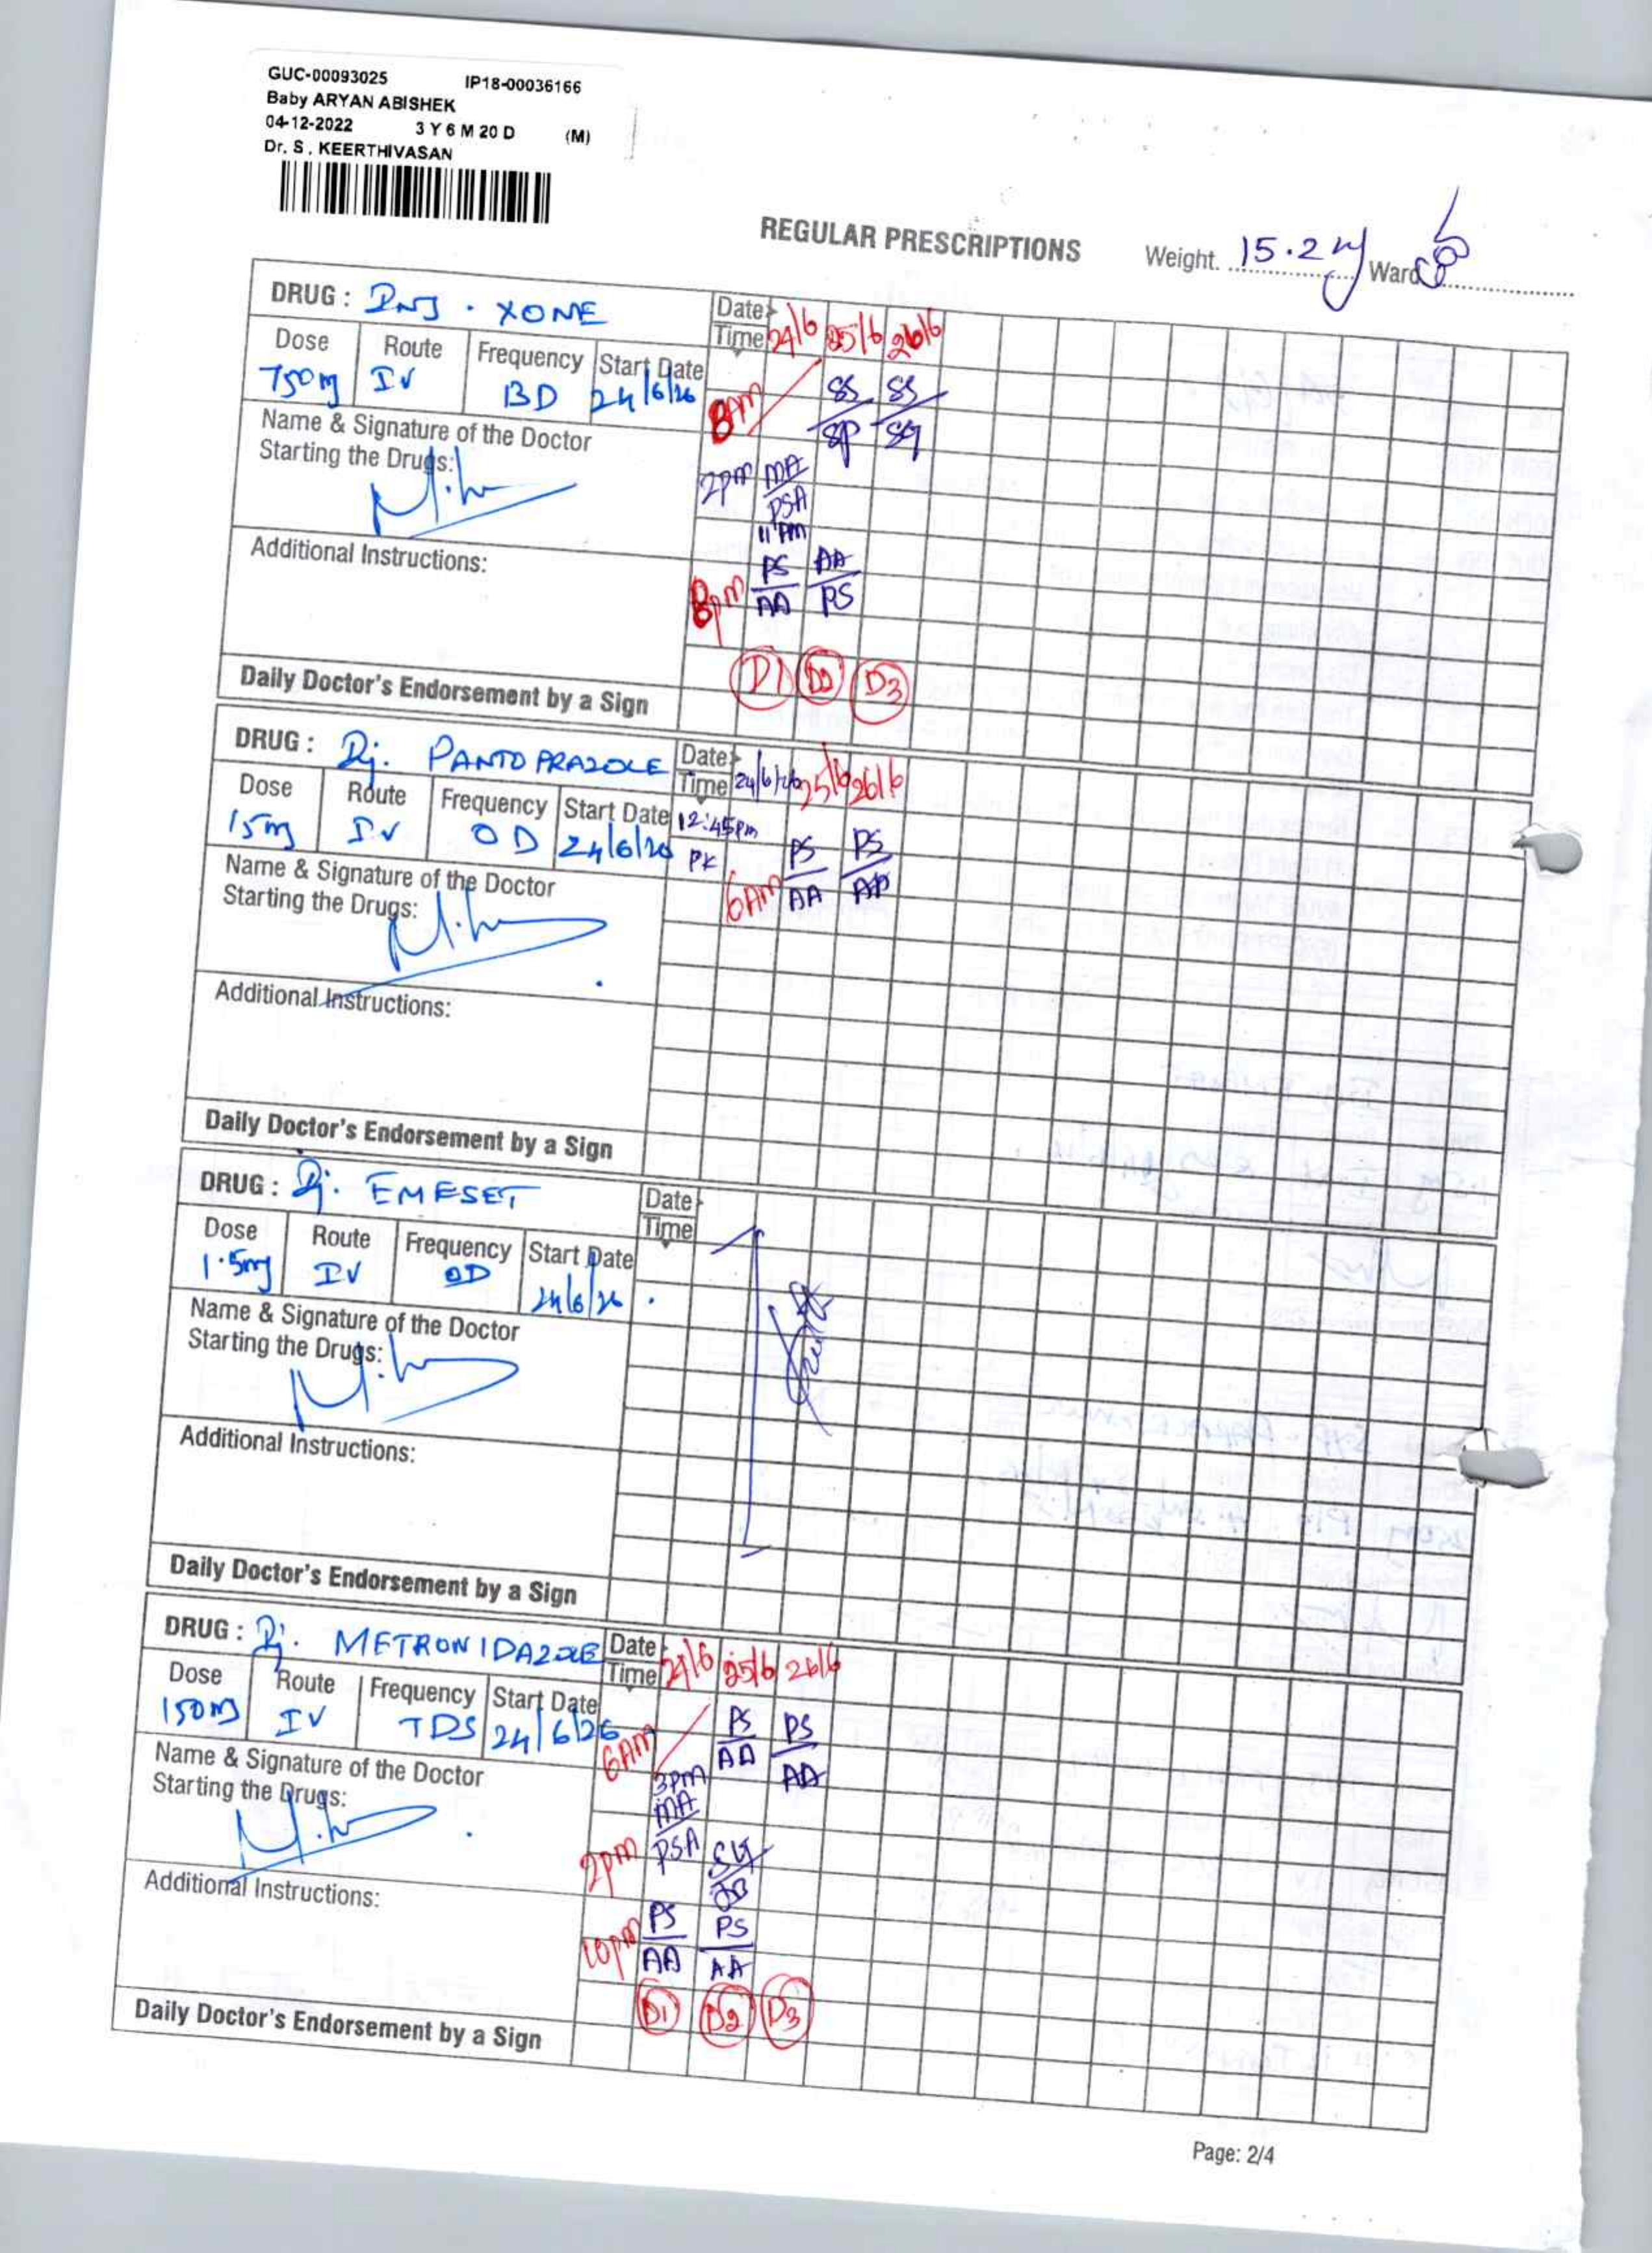 GUC-00093025 IP18-00036166
Baby ARYAN ABISHEK
04-12-2022 3 Y 6 M 20 D (M)
Dr. S . KEERTHIVASAN
REGULAR PRESCRIPTIONS Weight. 15.2 Ward
DRUG : INJ . XONE Date 24/6 25/6 26/6
Time
Dose Route Frequency Start Date
750mg IV BD 24/6/26
8AM SS SS
SP
Name & Signature of the Doctor
Starting the Drugs:
2pm MA
PSA
11 PM
Additional Instructions:
8pm PS AA
AA PS
D1 D2 D3
Daily Doctor's Endorsement by a Sign
DRUG : Inj. PANTOPRAZOLE Date 24/6/26 25/6 26/6
Time
Dose Route Frequency Start Date 12:45pm
15mg IV OD 24/6/26 PK
6AM PS PS
AA AA
Name & Signature of the Doctor
Starting the Drugs:
Additional Instructions:
Daily Doctor's Endorsement by a Sign
DRUG : Inj. EMESET Date
Time
Dose Route Frequency Start Date
1.5mg IV OD 24/6/26
Name & Signature of the Doctor
Starting the Drugs:
Additional Instructions:
Daily Doctor's Endorsement by a Sign
DRUG : Inj. METRONIDAZOLE Date 24/6 25/6 26/6
Time
Dose Route Frequency Start Date
150mg IV TDS 24/6/26
6AM PS PS
AA AA
Name & Signature of the Doctor
Starting the Drugs:
3pm
MA
2pm PSA
Additional Instructions:
10pm PS PS
AA AA
D1 D2 D3
Daily Doctor's Endorsement by a Sign
Page: 2/4